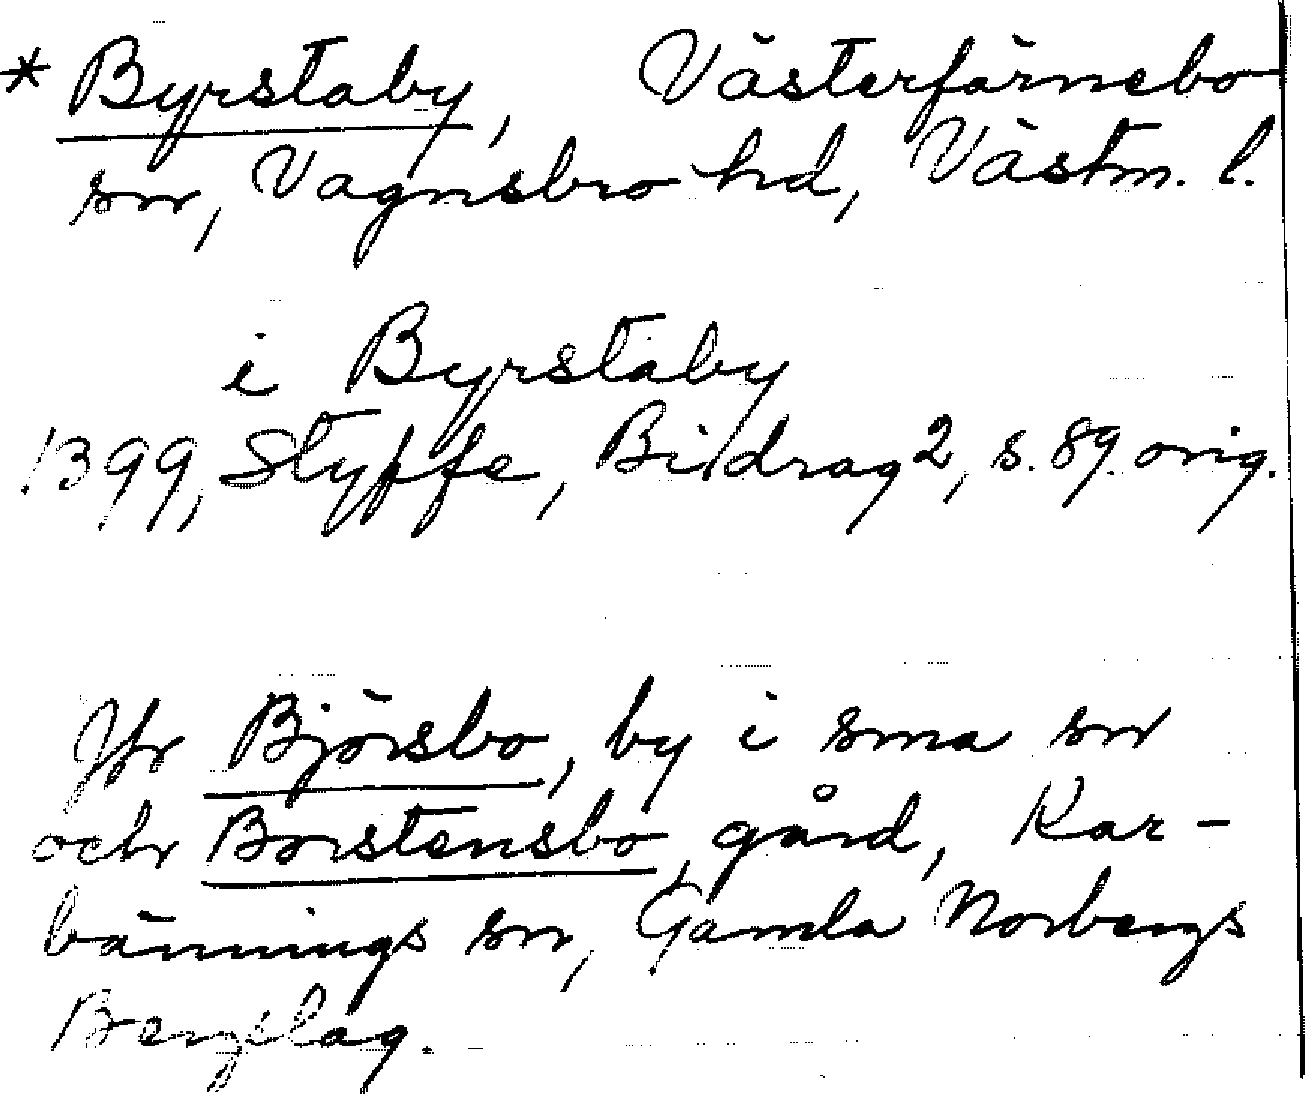 * Byrstaby, Västerfärnebo
sn, Vagnsbro hd, Västm. l.
i Byrstaby
1399, Styffe, Bidrag 2, s. 89. orig.
Jfr Björsbo, by i sma sn
och Borstensbo, gård, Kar-
bännings sn, Gamla Norbergs
Bergslag.